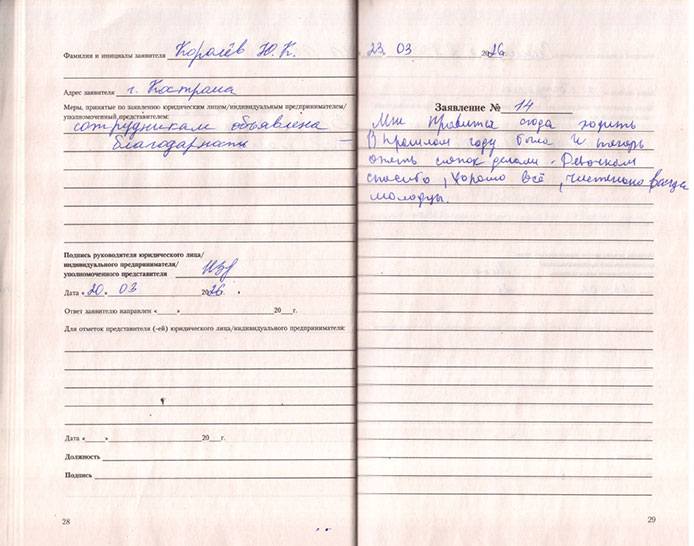 Фамилия и инициалы заявителя Королёв Ю. К.
Адрес заявителя г. Кострома
Меры, принятые по заявлению юридическим лицом/индивидуальным предпринимателем/
уполномоченный представителем:
сотрудникам объявлена
благодарность
Подпись руководителя юридического лица/
индивидуального предпринимателя/
уполномоченного представителя
Дата «20» 03 2026
Ответ заявителю направлен «___» ___ 20___г.
Для отметок представителя (-ей) юридического лица/индивидуального предпринимателя:
Дата «___» ___ 20___г.
Должность
Подпись
28
23 03 2026
Заявление № 14
Мне нравится сюда ходить
В прошлом году была и теперь
опять делали. Девочкам
спасибо, хорошо всё, чистенько всегда
молодцы.
29